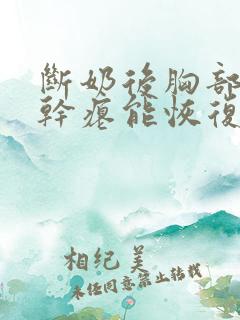 斷奶後胸部
幹癟能恢復
相纪美
未经同意禁止转载